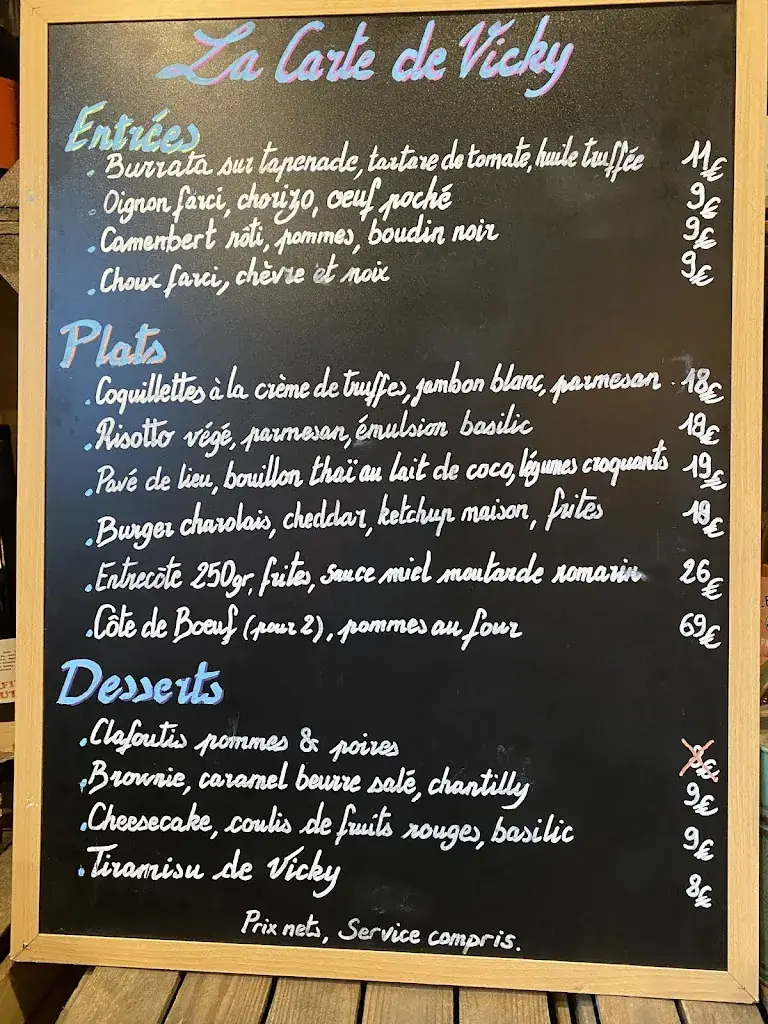 La Carte de Vicky
Entrées
. Burrata sur tapenade, tartare de tomate, huile truffée 11€
. Oignon farci, chorizo, oeuf poché 9€
. Camenbert rôti, pommes, boudin noir 9€
. Choux farci, chèvre et noix 9€
Plats
. Coquillettes à la crème de truffes, jambon blanc, parmesan . 18€
. Risotto végé, parmesan, émulsion basilic 18€
. Pavé de lieu, bouillon thaï au lait de coco, légumes croquants 19€
. Burger charolais, cheddar, ketchup maison, frites 19€
. Entrecôte 250gr, frites, sauce miel moutarde romarin 26€
. Côte de Boeuf (pour 2), pommes au four 69€
Desserts
. Clafoutis pommes & poires 8€
. Brownie, caramel beurre salé, chantilly 9€
. Cheesecake, coulis de fruits rouges, basilic 9€
. Tiramisu de Vicky 8€
Prix nets, Service compris.